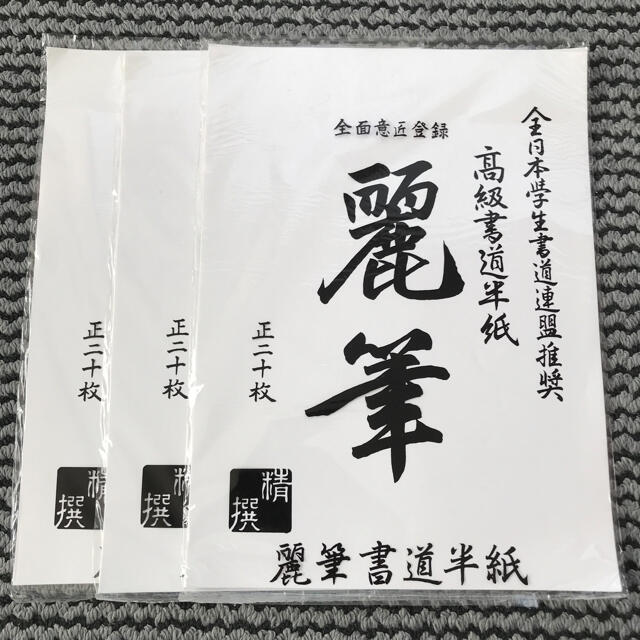 全日本學生書道連盟推奬
高級書道半紙
全面意匠登録
麗筆
正二十枚
精撰
麗筆書道半紙
正二十枚
精撰
正二十枚
精撰